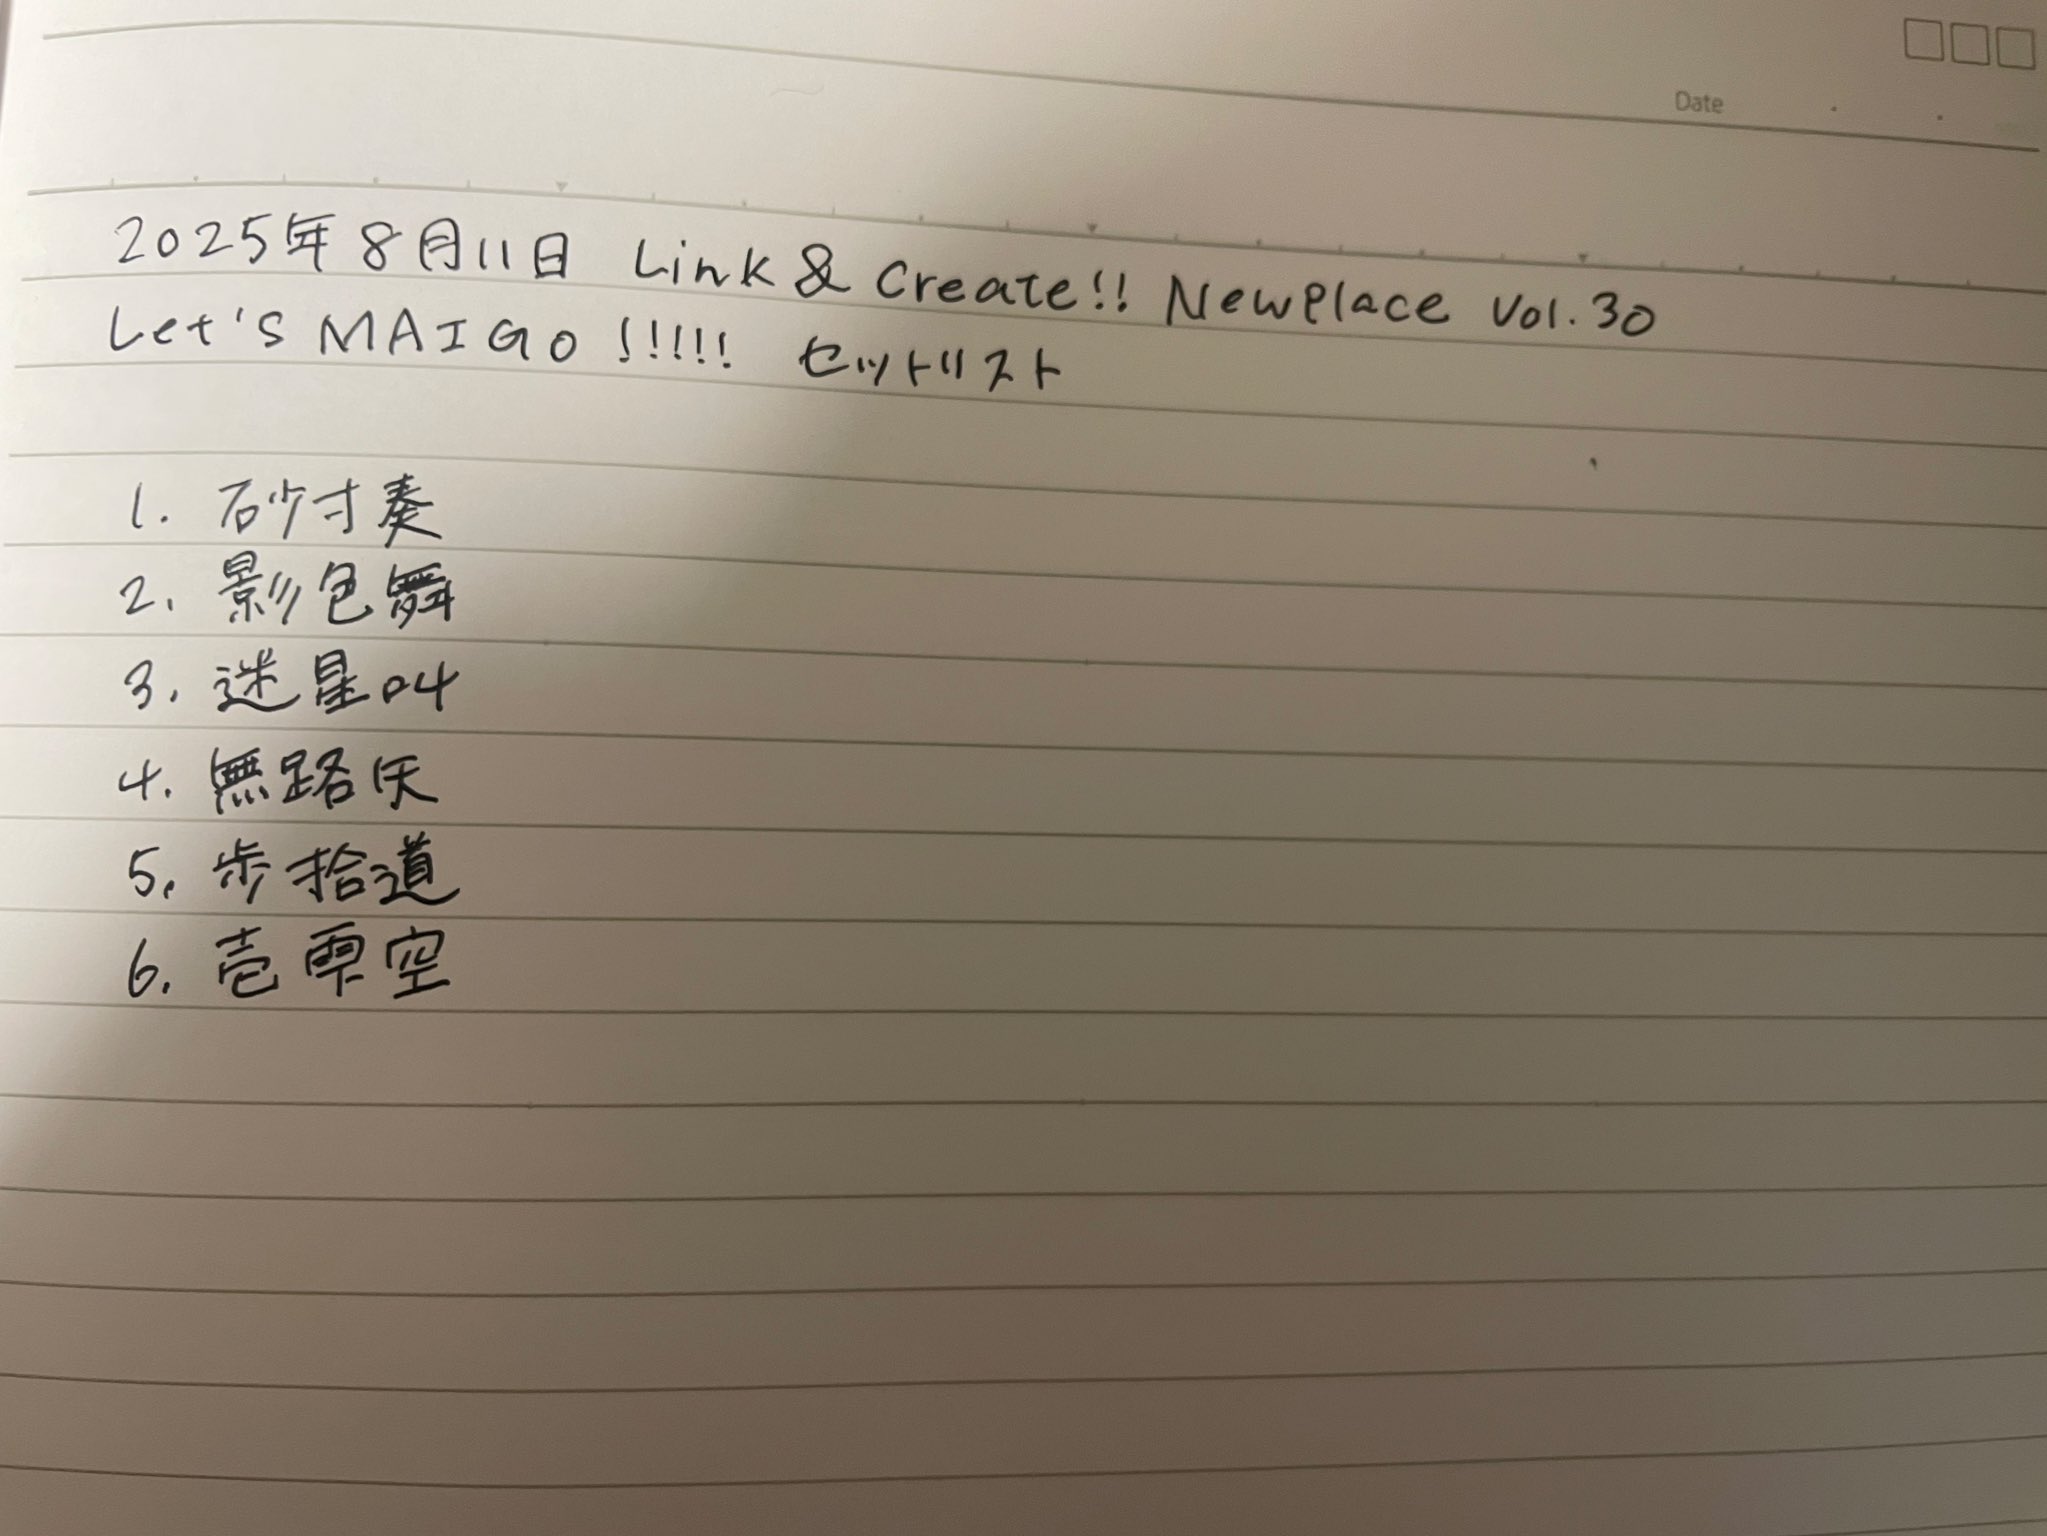 Date
2025年8月11日 Link & Create!! New Place Vol.30
Let's MAIGO!!!!! セットリスト
1. 砂寸奏
2. 影色舞
3. 迷星叫
4. 無路矢
5. 歩拾道
6. 壱雫空